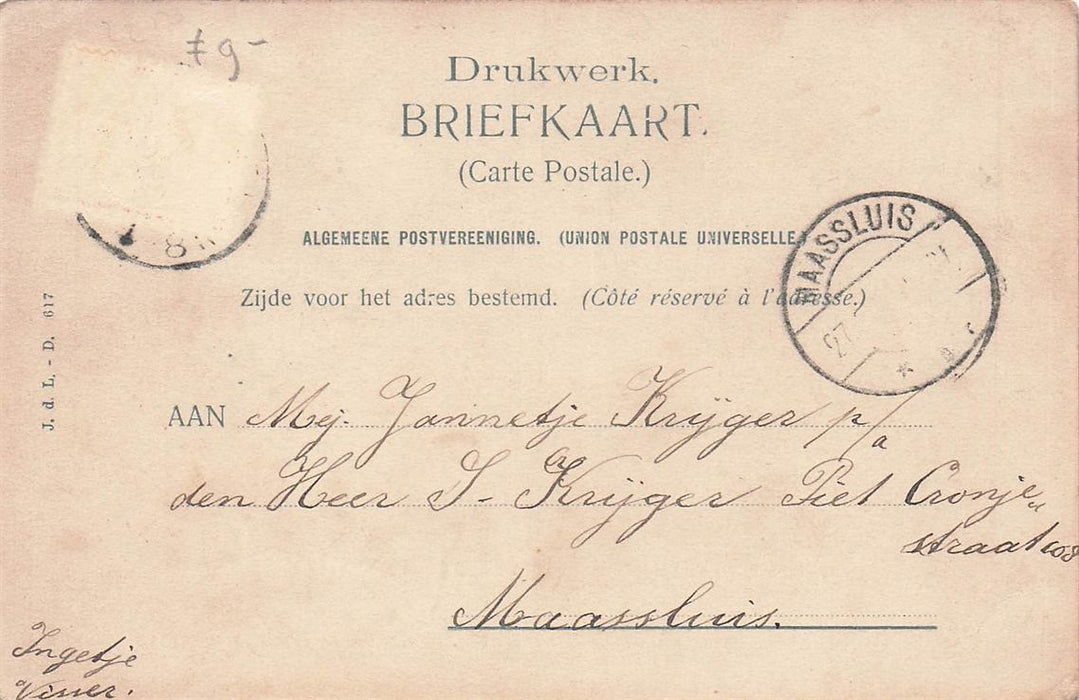 ƒ 9-
Drukwerk.
BRIEFKAART.
(Carte Postale.)
ALGEMEENE POSTVEREENIGING. (UNION POSTALE UNIVERSELLE
Zijde voor het adres bestemd. (Côté réservé à l'adresse.)
MAASSLUIS
27
8
J. d. L. - D. 617
AAN Mej. Jannetje Krijger p/a
den Heer J- Krijger Piet Cronje"
straat
Maassluis.
Ingetje
Visser.